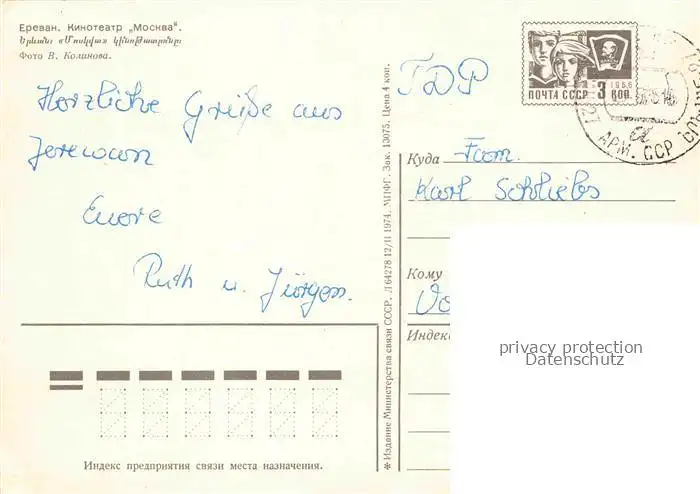 Ереван. Кинотеатр „Москва“.
Երևան: «Մոսկվա» կինոթատրոնը:
Фото В. Колинова.
Herzliche Grüße aus
Jerewan
Euere
Ruth u. Jürgen.
✻ Издание Министерства связи СССР. Л 64278 12/II 1974. МПФГ. Зак. 13075. Цена 4 коп.
ГДР
ПОЧТА СССР 3 КОП.
1966
АРМ. ССР
Куда Fam.
Karl Schliebs
Кому
Индекс
privacy protection
Datenschutz
Индекс предприятия связи места назначения.